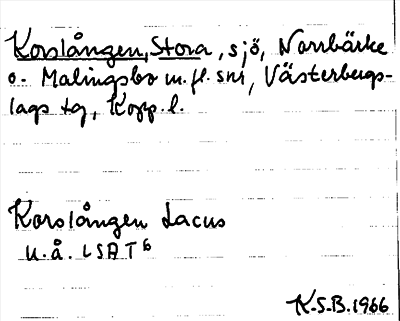 Korslången, Stora, sjö, Norrbärke
o. Malingsbo m.fl. snr, Västerbergs-
lags tg, Kopp. l.
Korslången Lacus
u.å. LSA T6
K.S.B. 1966